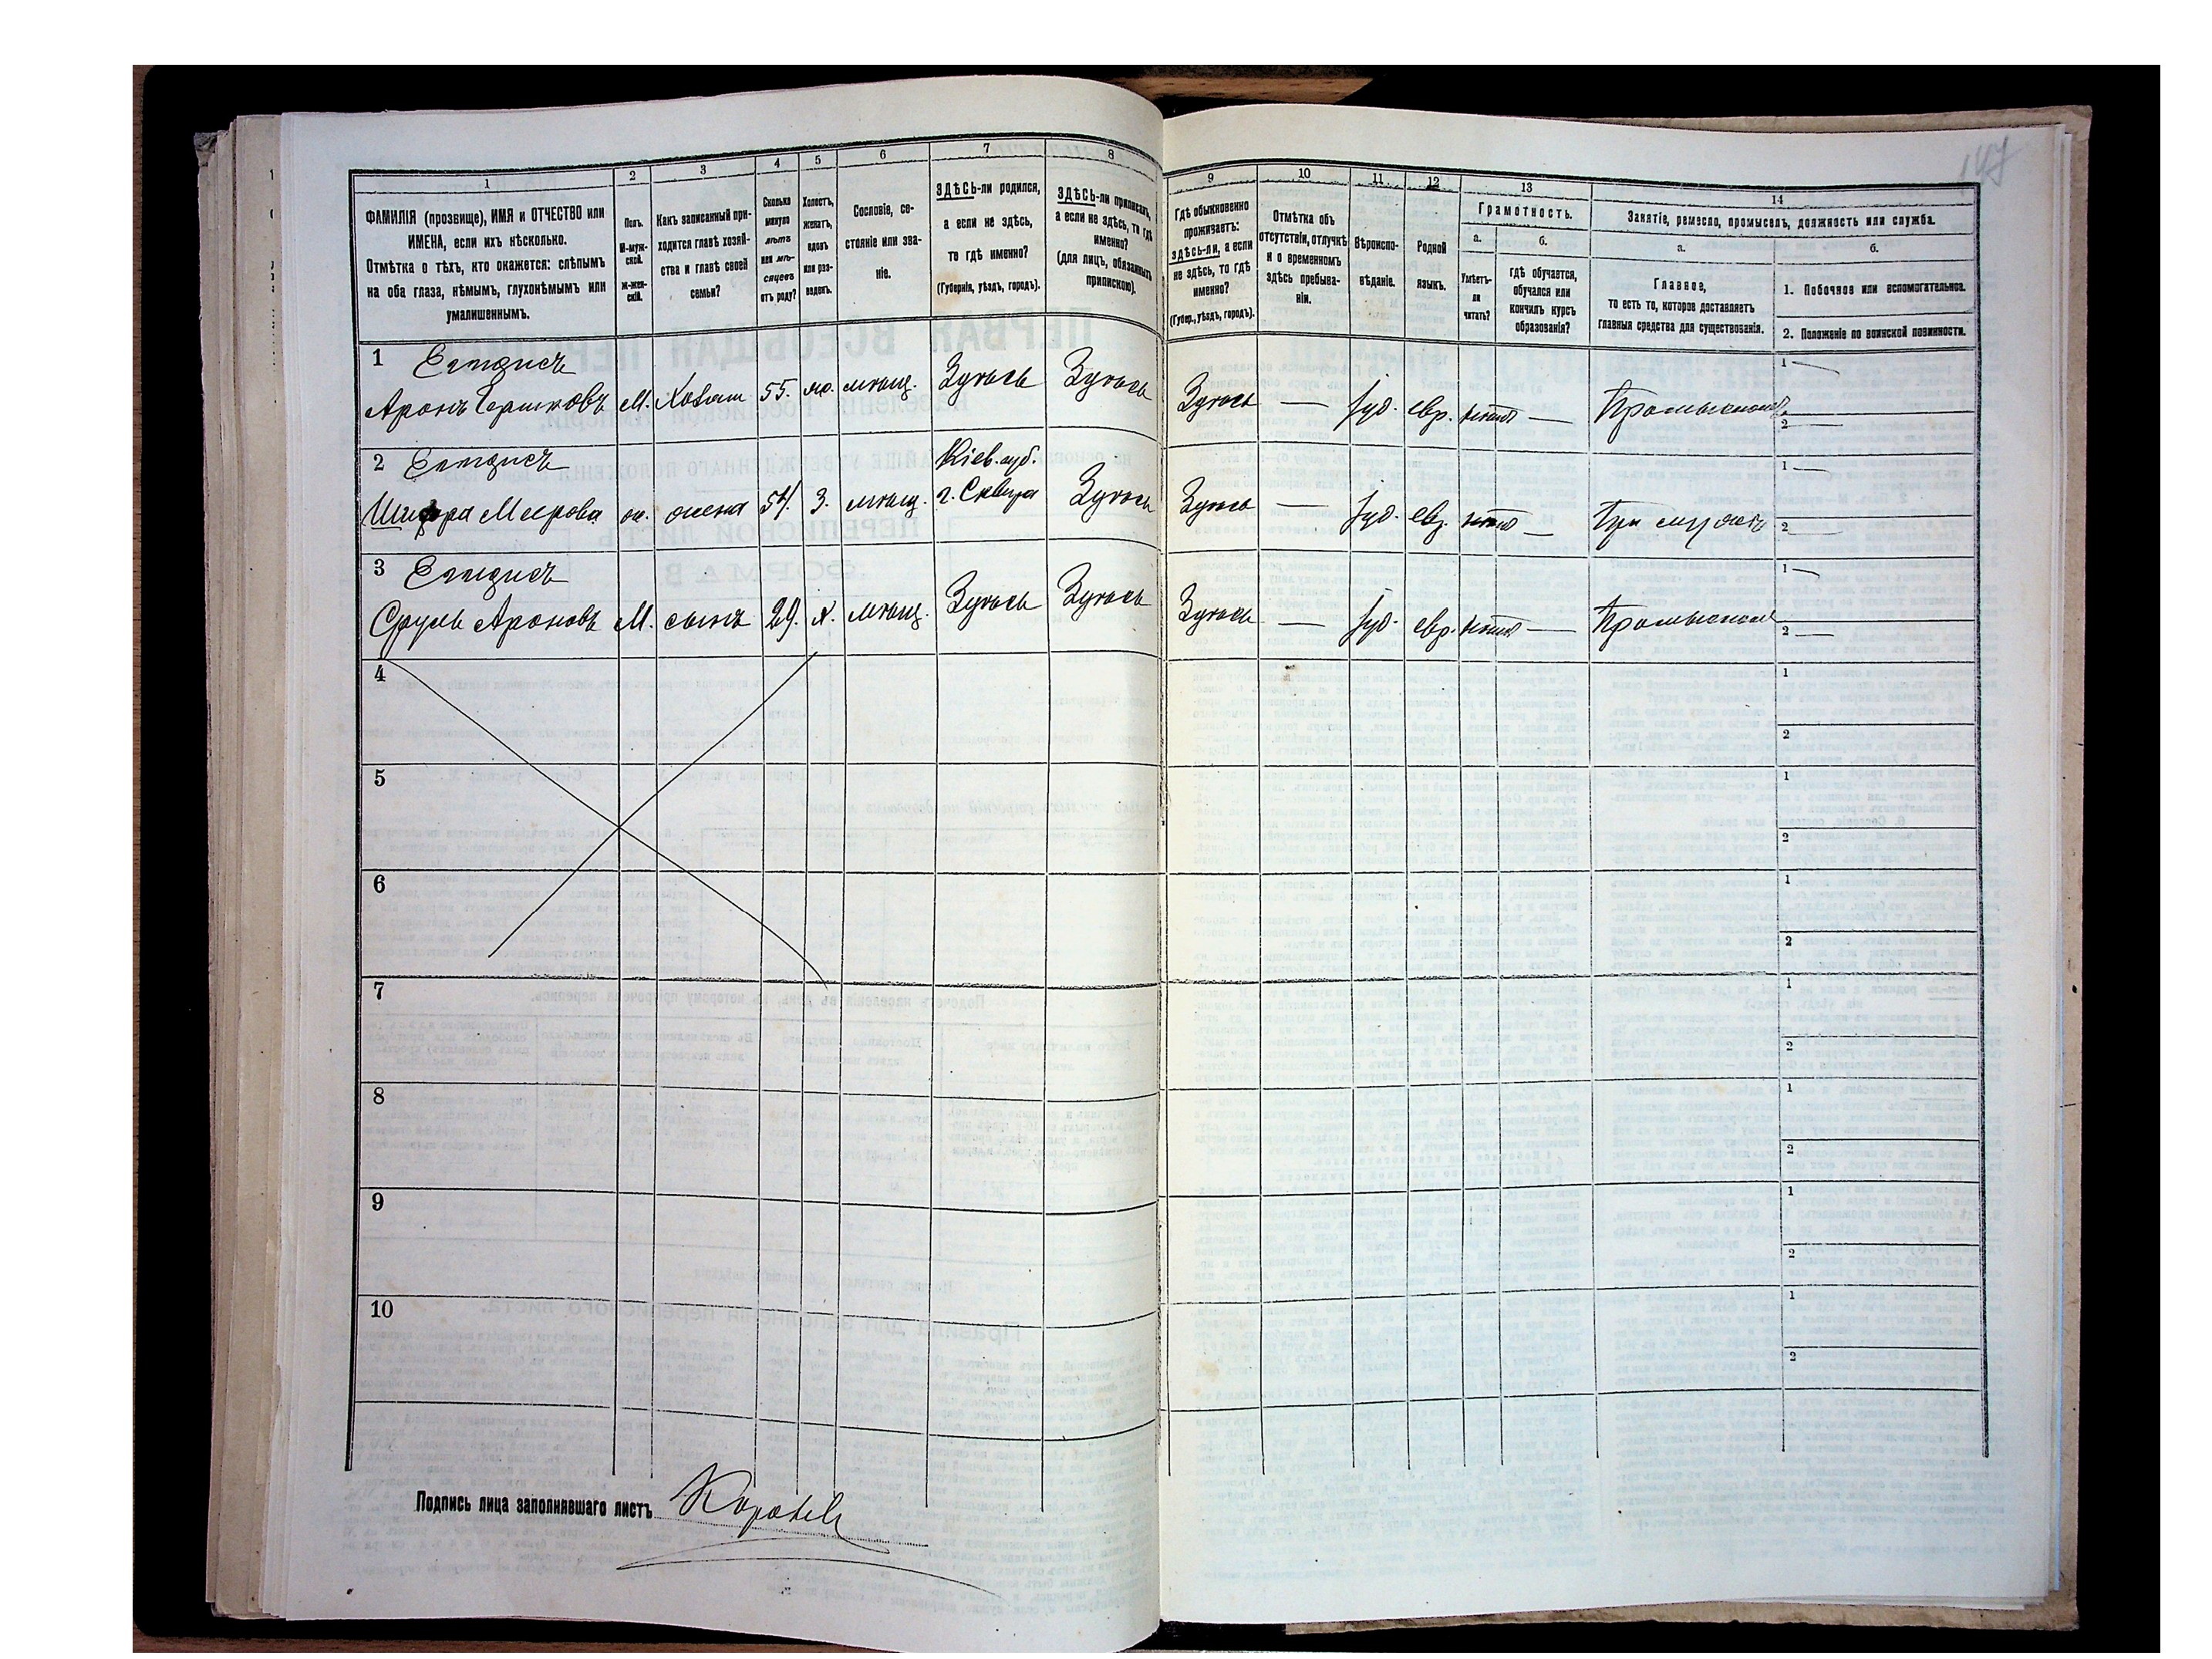 147
1
2
3
4
5
6
7
8
ФАМИЛІЯ (прозвище), ИМЯ и ОТЧЕСТВО или
ИМЕНА, если ихъ нѣсколько.
Отмѣтка о тѣхъ, кто окажется: слѣпымъ
на оба глаза, нѣмымъ, глухонѣмымъ или
умалишеннымъ.
Полъ.
М-муж-
ской.
Ж-жен-
скій.
Какъ записанный при-
ходится главѣ хозяй-
ства и главѣ своей
семьи?
Сколько
минуло
лѣтъ
или мѣ-
сяцевъ
отъ роду?
Холостъ,
женатъ,
вдовъ
или раз-
веденъ.
Сословіе, со-
стояніе или зва-
ніе.
ЗДѢСЬ-ли родился,
а если не здѣсь,
то гдѣ именно?
(Губернія, уѣздъ, городъ).
ЗДѢСЬ-ли приписанъ,
а если не здѣсь, то гдѣ
именно?
(для лицъ, обязанныхъ
припискою).
9
10
11
12
13
14
Гдѣ обыкновенно
проживаетъ:
здѣсь-ли, а если
не здѣсь, то гдѣ
именно?
(Губер., уѣздъ, городъ).
Отмѣтка объ
отсутствіи, отлучкѣ
и о временномъ
здѣсь пребыва-
ніи.
Вѣроиспо-
вѣданіе.
Родной
языкъ.
Грамотность.
а.
б.
Умѣетъ-
ли
читать?
гдѣ обучается,
обучался или
кончилъ курсъ
образованія?
Занятіе, ремесло, промыселъ, должность или служба.
а.
б.
Главное,
то есть то, которое доставляетъ
главныя средства для существованія.
1. Побочное или вспомогательное.
2. Положеніе по воинской повинности.
1
Аронъ Гершковъ М. Хозяин 55. мѣщ. Здѣсь Здѣсь Здѣсь — Іуд. евр. нѣтъ —
1 —
2 —
2
Шифра Меерова ж. жена 3. мѣщ. Кіев. губ.
г. Сквира Здѣсь Здѣсь — Іуд. евр. нѣтъ — При мужѣ
1 —
2 —
3
Сруль Ароновъ М. сынъ 29. х. мѣщ. Здѣсь Здѣсь Здѣсь — Іуд. евр. нѣтъ —
1 —
2 —
4
1
2
5
1
2
6
1
2
7
1
2
8
1
2
9
1
2
10
1
2
Подпись лица заполнявшаго листъ